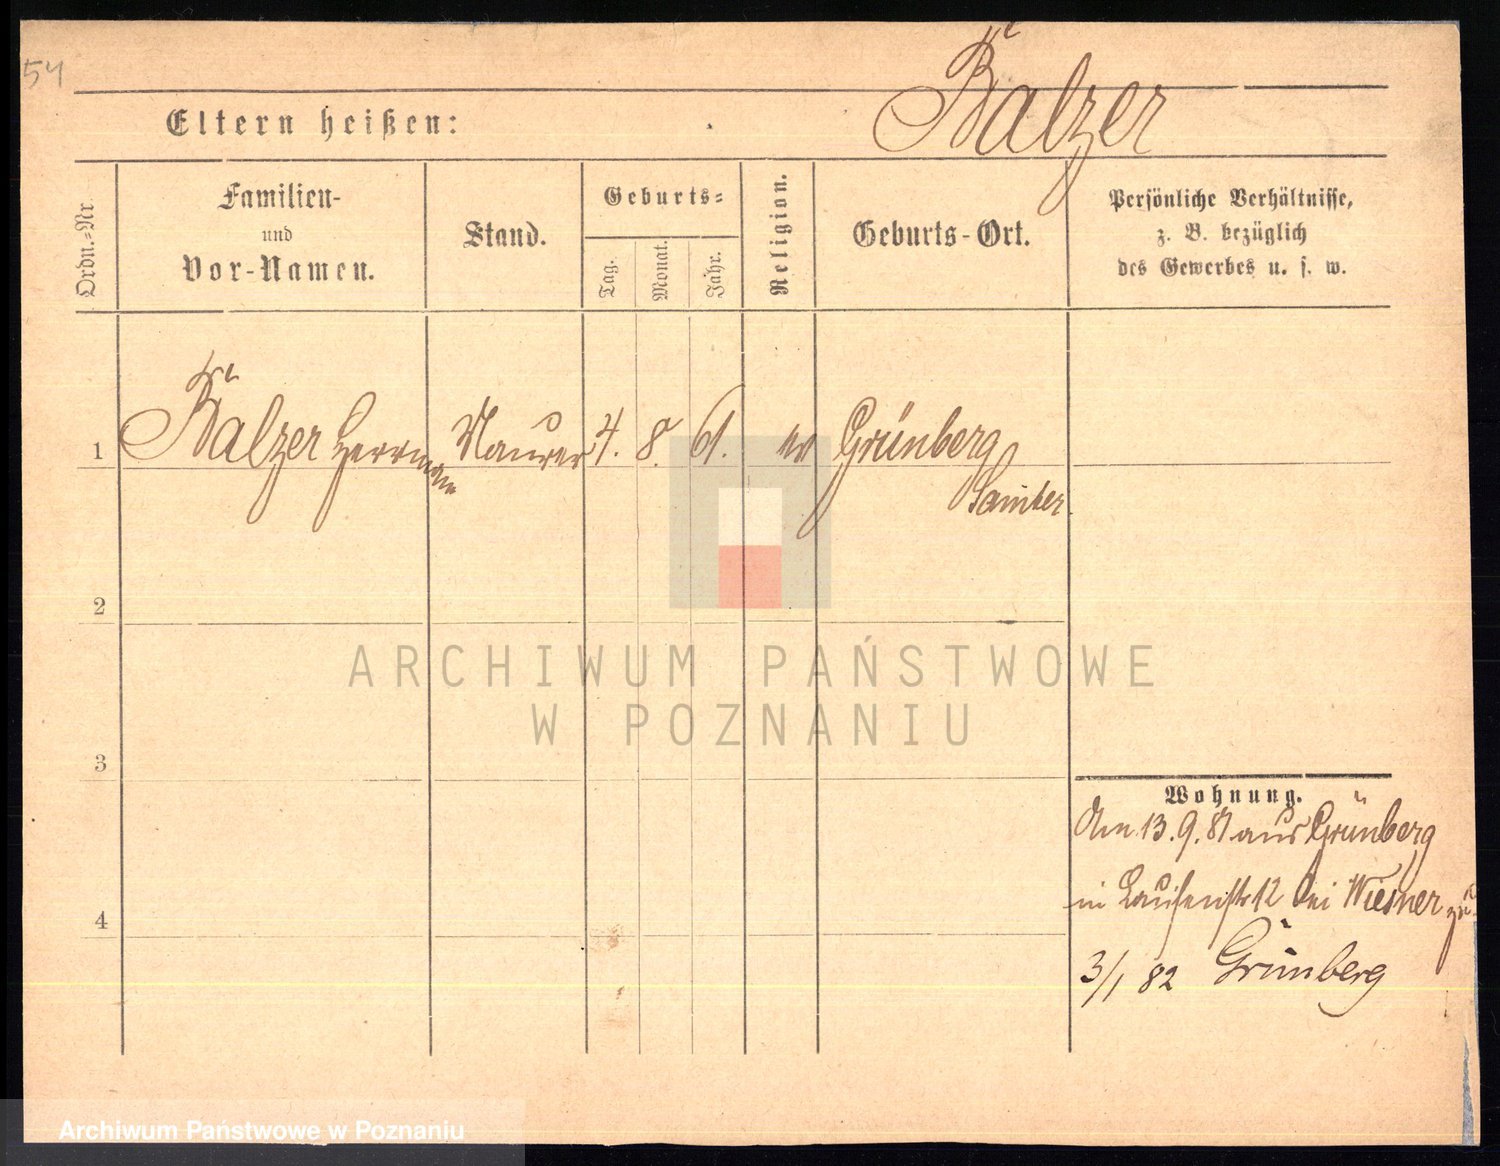 54
Balzer
Eltern heißen:
Ordn.-Nr.
Familien-
und
Vor-Namen.
Stand.
Geburts-
Tag.
Monat.
Jahr.
Religion.
Geburts-Ort.
Persönliche Verhältnisse,
z. B. bezüglich
des Gewerbes u. s. w.
1 Balzer Herrmann Maurer 4. 8. 61. ev Grünberg
Samter.
2
3
4
ARCHIWUM PAŃSTWOWE
W POZNANIU
Wohnung.
Am 13.9.81 aus Grünberg
in Louisenstr 12 bei Wiesner
3/1 82 Grünberg
Archiwum Państwowe w Poznaniu